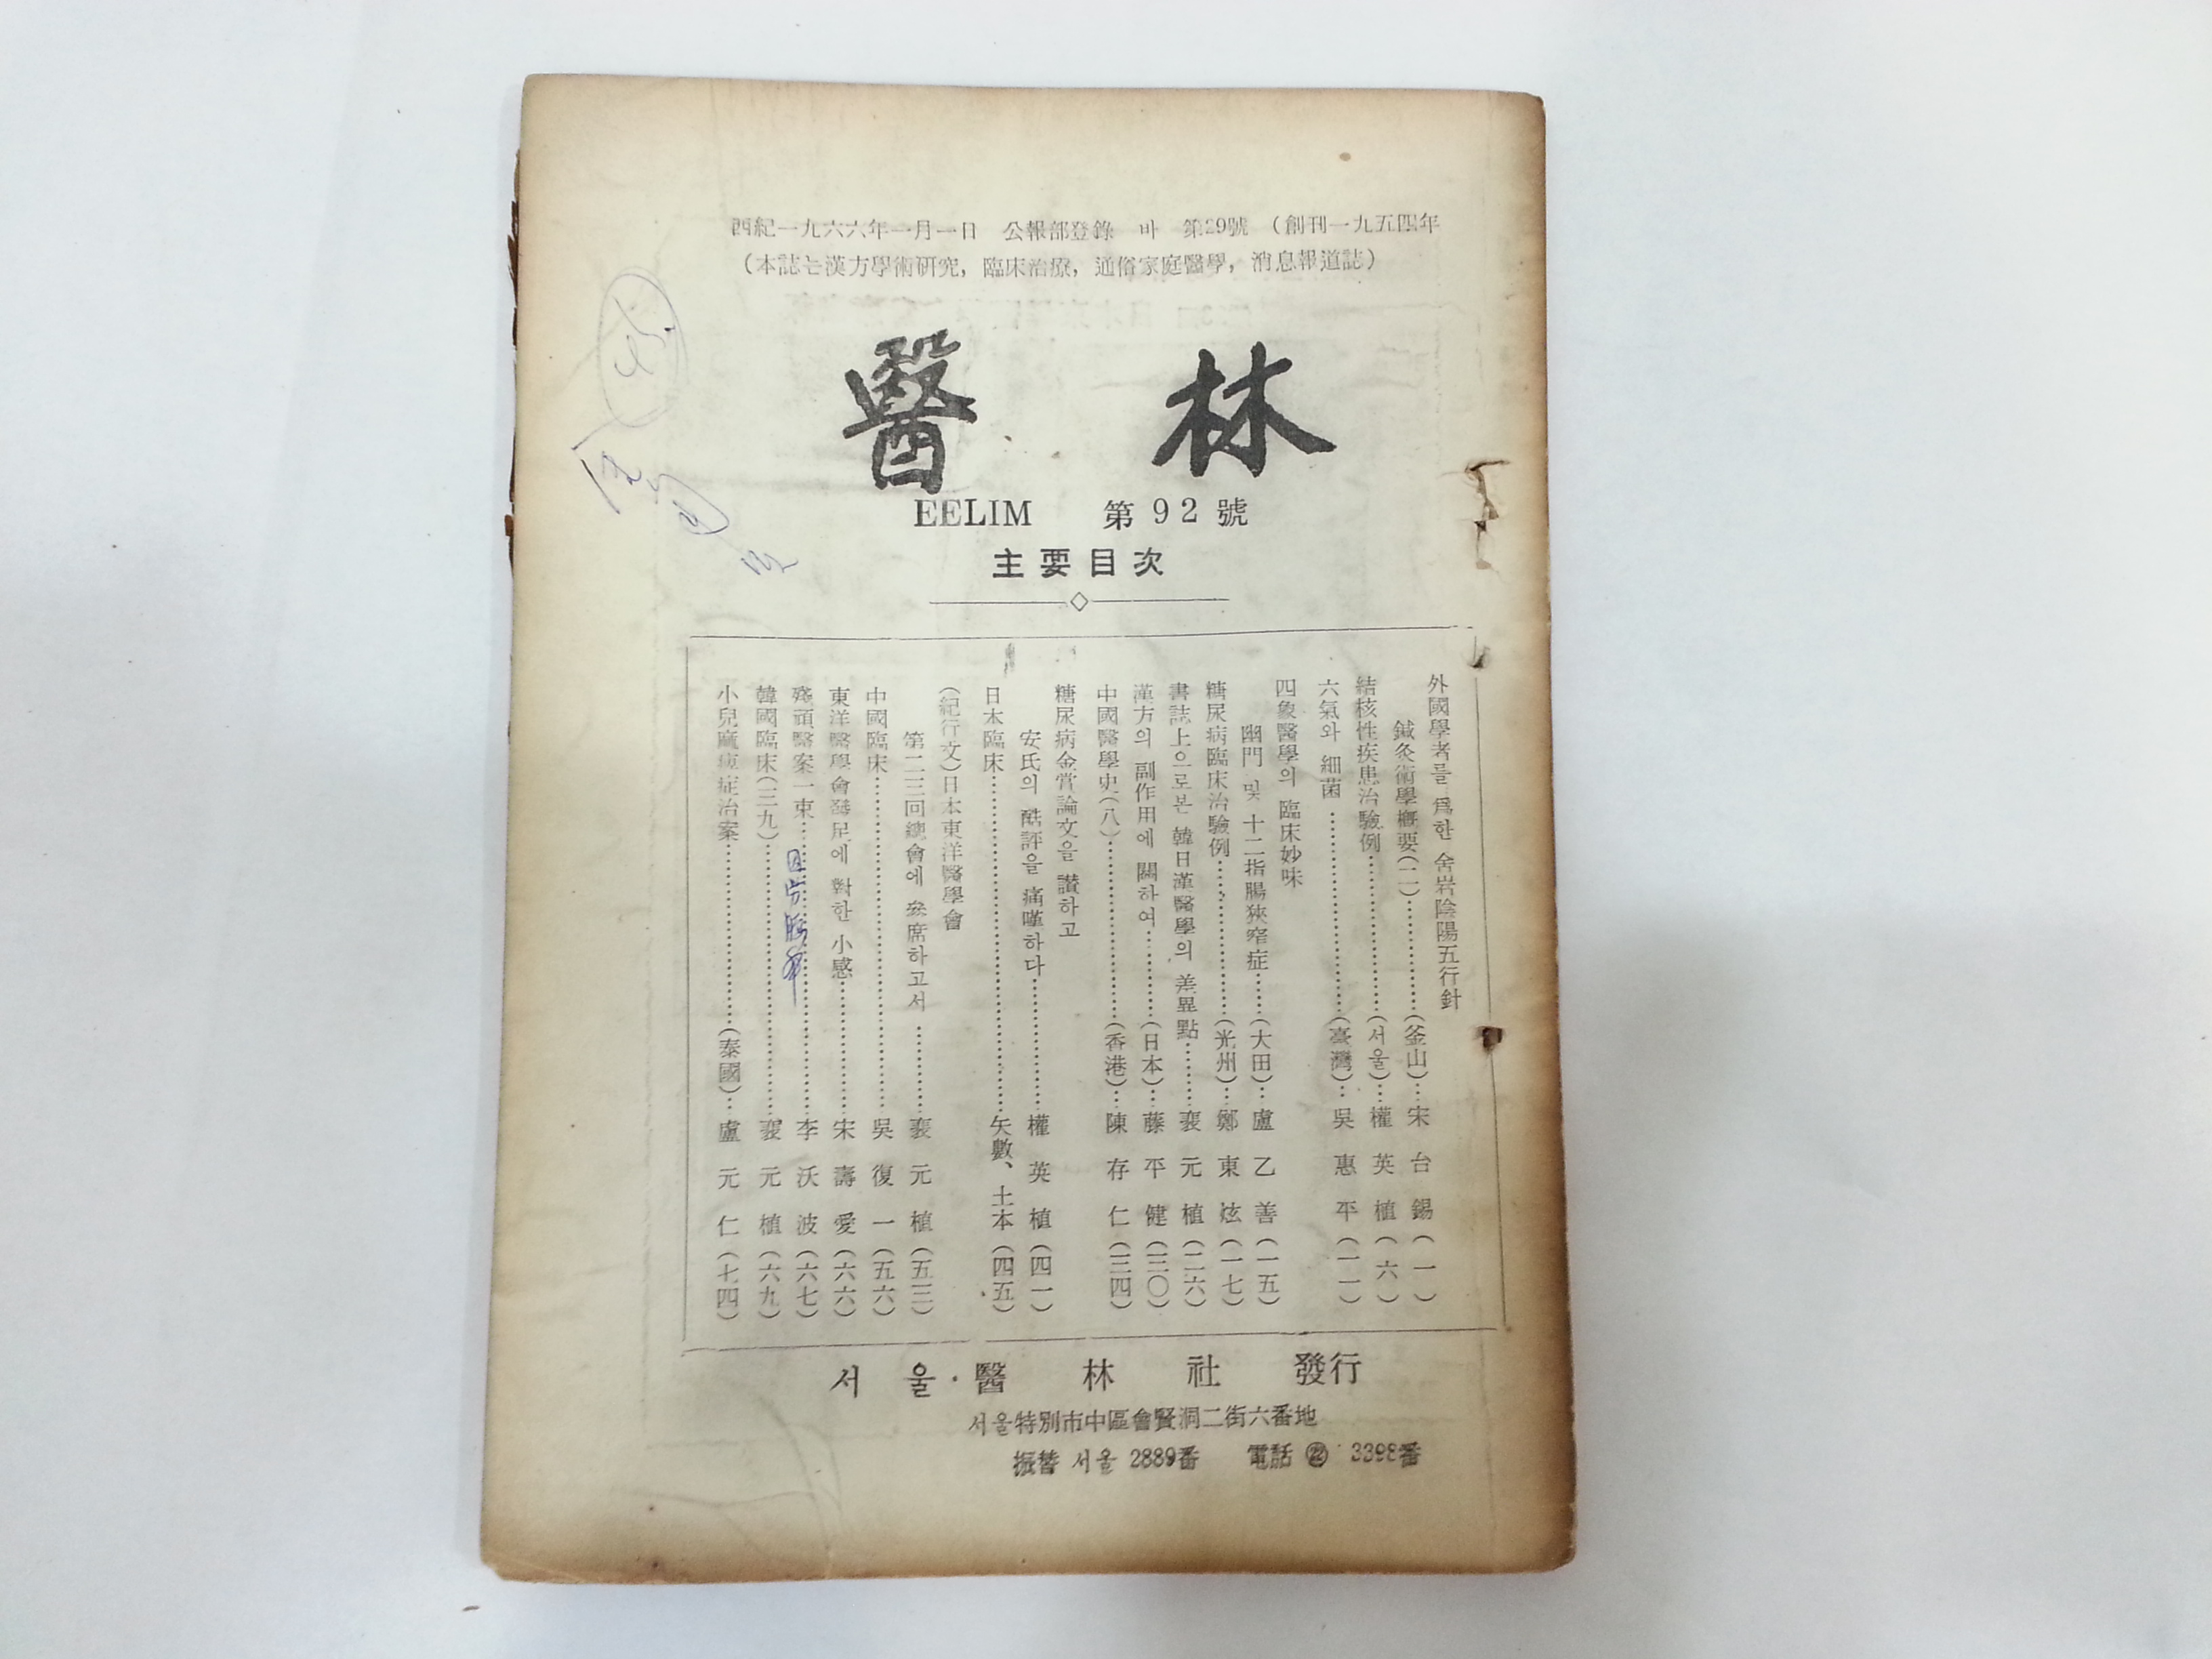 西紀一九六六年一月一日 公報部登錄 바 第29號 (創刊一九五四年
(本誌는漢方學術研究, 臨床治療, 通俗家庭醫學, 消息報道誌)
醫林
EELIM 第92號
主要目次
外國學者를 爲한 舍岩陰陽五行針
鍼灸術學槪要(二)…………(釜山)…宋台錫(一)
結核性疾患治驗例…………(서울)…權英植(六)
六氣와 細菌…………(臺灣)…吳惠平(一一)
四象醫學의 臨床妙味
幽門 및 十二指腸狹窄症……(大田)…盧乙善(一五)
糖尿病臨床治驗例…………(光州)…鄭東炫(一七)
書誌上으로본 韓日漢醫學의 差異點………裵元植(二六)
漢方의 副作用에 關하여…………(日本)…藤平健(三〇)
中國醫學史(八)…………(香港)…陳存仁(三四)
糖尿病金賞論文을 讚하고
安氏의 酷評을 痛嘆하다…………權英植(四一)
日本臨床…………矢數、土本(四五)
(紀行文)日本東洋醫學會
第二三回總會에 參席하고서…………裵元植(五三)
中國臨床…………吳復一(五六)
東洋醫學會發足에 對한 小感…………宋壽愛(六六)
殘頑醫案一束…………李沃波(六七)
韓國臨床(三九)…………裵元植(六九)
小兒麻痺症治案…………(泰國)…盧元仁(七四)
서울·醫林社 發行
서울特別市中區會賢洞二街六番地
振替 서울 2889番 電話 ㉒ 3398番
45